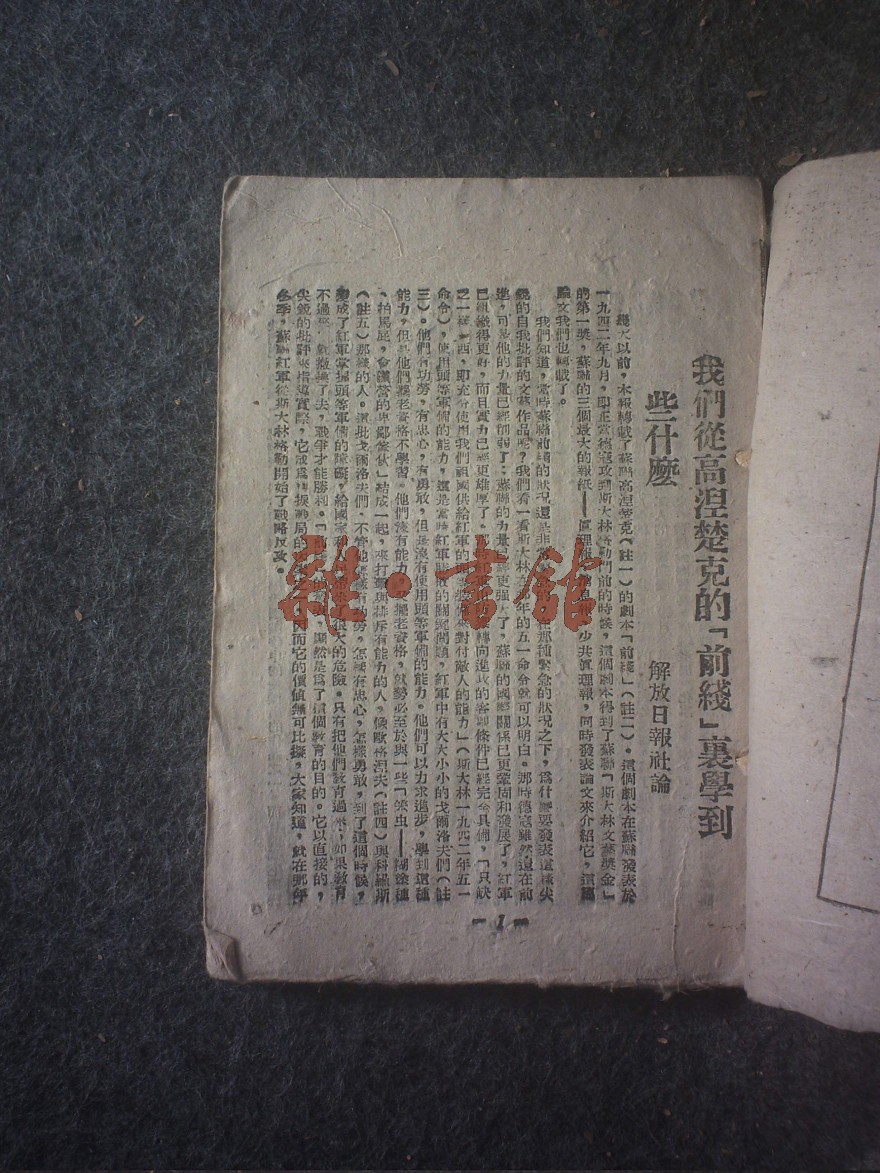 我們從高湼楚克的「前綫」裏學到
些什麼
解放日報社論
幾天以前，本報轉載了蘇聯高湼楚克（註一）的劇本「前綫」（註二）。這個劇本在蘇聯發表於
一九四二年九月，即正當德寇攻到斯大林格勒門前的時候，這個劇本得到了蘇聯「斯大林文藝獎金」
的第一獎，蘇聯的三個最大的報紙——眞理報、少共眞理報，同時發表論文來介紹它，這篇
論文我們也轉載了。
我們知道，當時蘇聯前綫的狀況還是非常在那種緊急的狀況之下，爲什麼要發表這樣尖
銳的自我批評的文藝作品呢？我們看一看斯大林六年的五一命令就可以明白。那時德寇雖然還在前
進，可是他的力量已經削弱了；蘇聯的力量已經更强大了，蘇聯的國際關係已更鞏固和發展了，紅軍
已組織得更好，而且實力已經更雄厚了。轉向進攻的客觀條件已經完全具備，「只缺
之一樣東西，即充分使用我們祖國供給紅軍的來對付敵人的能力」（斯大林一九四二年五一
命令），使用頭等軍備的能力，這是當時紅軍勝敗的關鍵問題，紅軍中有大大小小的戈爾洛夫們（註
三）。他們有功勞，有忠心，有勇敢，但是沒有使用頭等軍備的能力。他們可以力求進步，學到這種
能力，但是他們擺老資格不學習。他們沒有能力，擺老資格，就勢必至於與一些「笨虫——糊塗種
、拍馬屁，會鑽營的卑鄙傢伙」結成一起，來打擊與排斥有能力的人，像歐格湼夫（註四）與科羅斯
（註五）那樣的人。這批戈爾洛夫們，不管他怎樣有功勞，怎樣有忠心，怎樣勇敢，到了這個時候，
變成了紅軍掌握頭等軍備的障礙，給國家和人很大的危險。只有把他們教育過來；如果教育
不過來，就撤換了去，戰爭才能勝利。「前顯然是爲了這個教育的目的。它以直接的，
尖銳的批評來指導實際，它成爲扭轉戰局的因而它的價值無可比擬，大家知道，就在那年
冬季，蘇聯紅軍從斯大林格勒開始了戰略反攻。
— 1 —
雜·書館